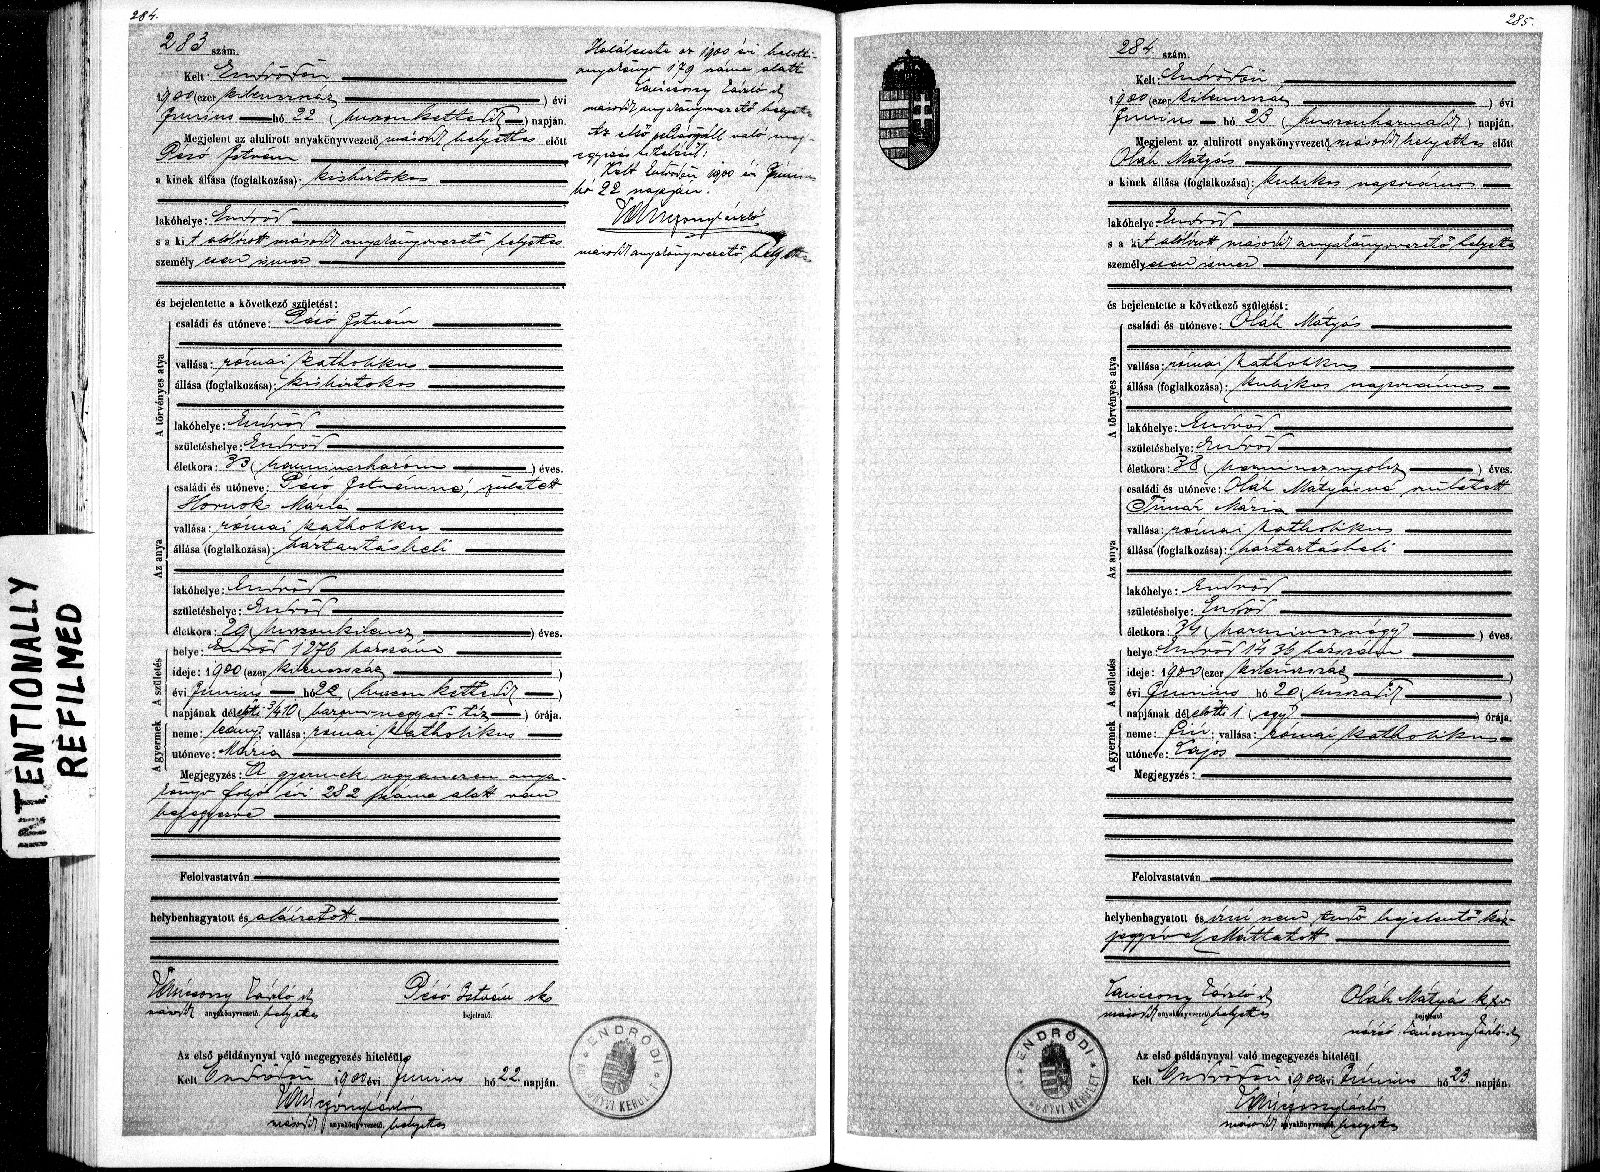 284.
283 szám.
Kelt: Endrődön
1900 (ezer kilenczszáz ) évi
Junius hó 22 ( huszonkettedik ) napján.
Megjelent az alulirott anyakönyvvezető másodk helyettes előtt
Pésó István
a kinek állása (foglalkozása): kisbirtokos
lakóhelye: Endrőd
s a kit alólirott másodk anyakönyvvezető helyettes
személyesen ismer
és bejelentette a következő születést:
A törvényes atya
családi és utóneve: Pésó István
vallása: római katholikus
állása (foglalkozása): kisbirtokos
lakóhelye: Endrőd
születéshelye: Endrőd
életkora: 33 ( harminczhárom ) éves.
Az anya
családi és utóneve: Pésó Istvánné, született
Hornok Mária
vallása: római katholikus
állása (foglalkozása): háztartásbeli
lakóhelye: Endrőd
születéshelye: Endrőd
életkora: 29 ( huszonkilencz ) éves.
A születés
helye: Endrőd 1276 házszám
ideje: 1900 (ezer kilenczszáz )
évi Junius hó 22 ( huszonkettedik )
napjának délelőtti 3/4 10 ( háromnegyed tíz ) órája.
A gyermek
neme: leány; vallása: római katholikus
utóneve: Mária
Megjegyzés: A gyermek ugyanezen anya-
könyv folyó évi 282 száma alatt van
bejegyezve
Felolvastatván
helybenhagyatott és aláíratott.
László sk Pésó István sk
másodk anyakönyvvezető. helyettes bejelentő.
Az első példánynyal való megegyezés hiteléül.
Kelt Endrődön 1900 évi Junius hó 22 napján.
másodk anyakönyvvezető. helyettes
ENDRŐDI
ANYAKÖNYVI KERÜLET
Halálesete az 1900 évi halotti
anyakönyv 179 száma alatt
László sk
másodk anyakönyvvezető helyettes
Az első példánynyal való meg-
egyezés hiteléül:
Kelt Endrődön 1900 évi Junius
hó 22 napján.
másodk anyakönyvvezető helyettes
285.
284 szám.
Kelt: Endrődön
1900 (ezer kilenczszáz ) évi
Junius hó 23 ( huszonharmadik ) napján.
Megjelent az alulirott anyakönyvvezető másodk helyettes előtt
Oláh Mátyás
a kinek állása (foglalkozása): kubikos napszámos
lakóhelye: Endrőd
s a kit alólirott másodk anyakönyvvezető helyettes
személyesen ismer
és bejelentette a következő születést:
A törvényes atya
családi és utóneve: Oláh Mátyás
vallása: római katholikus
állása (foglalkozása): kubikos napszámos
lakóhelye: Endrőd
születéshelye: Endrőd
életkora: 38 ( harmincznyolcz ) éves.
Az anya
családi és utóneve: Oláh Mátyásné született
Timár Mária
vallása: római katholikus
állása (foglalkozása): háztartásbeli
lakóhelye: Endrőd
születéshelye: Endrőd
életkora: 34 ( harmincznégy ) éves.
A születés
helye: Endrőd 1436 házszám
ideje: 1900 (ezer kilenczszáz )
évi Junius hó 20 ( huszadik )
napjának délelőtti 1 ( egy ) órája.
A gyermek
neme: fiú; vallása: római katholikus
utóneve: Lajos
Megjegyzés:
Felolvastatván
helybenhagyatott és írni nem tudó bejelentő kéz-
jegyével elláttatott
László sk Oláh Mátyás
másodk anyakönyvvezető. helyettes bejelentő
László sk
Az első példánynyal való megegyezés hiteléül.
Kelt Endrődön 1900 évi Junius hó 23 napján.
másodk anyakönyvvezető. helyettes
ENDRŐDI
ANYAKÖNYVI KERÜLET
INTENTIONALLY
REFILMED